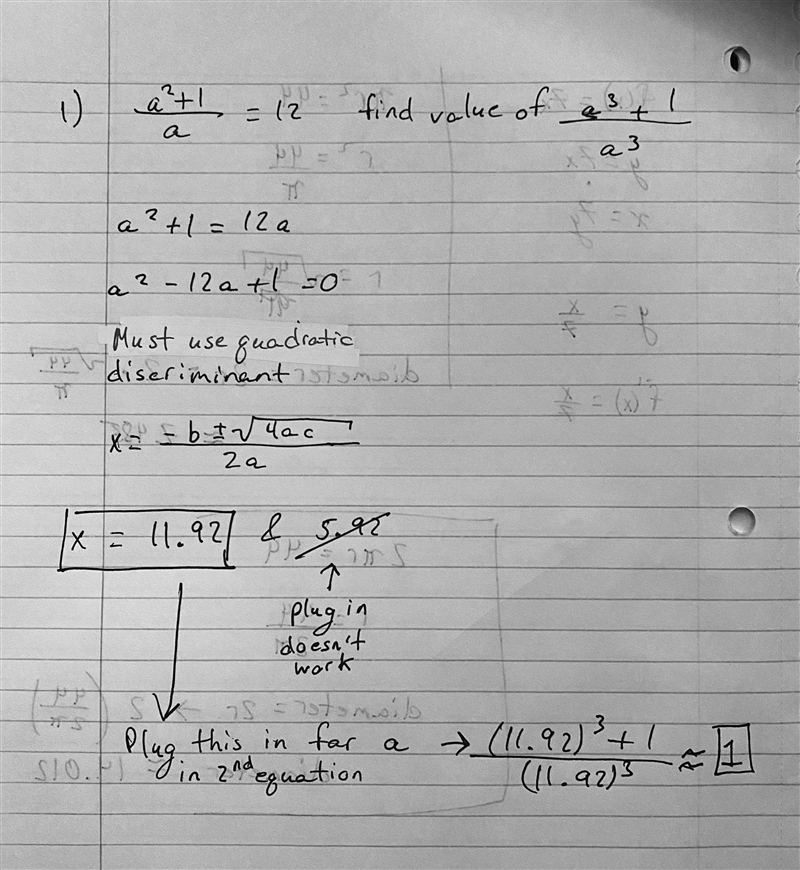 1) a²+1 / a = 12 find value of a³ + 1 / a³
a² + 1 = 12a
a² - 12a + 1 = 0
Must use quadratic
discriminant
x = -b ± √4ac / 2a
x = 11.92 & 5.92
↑
plug in
doesn't
work
Plug this in for a → (11.92)³ + 1 / (11.92)³ ≈ 1
in 2nd equation